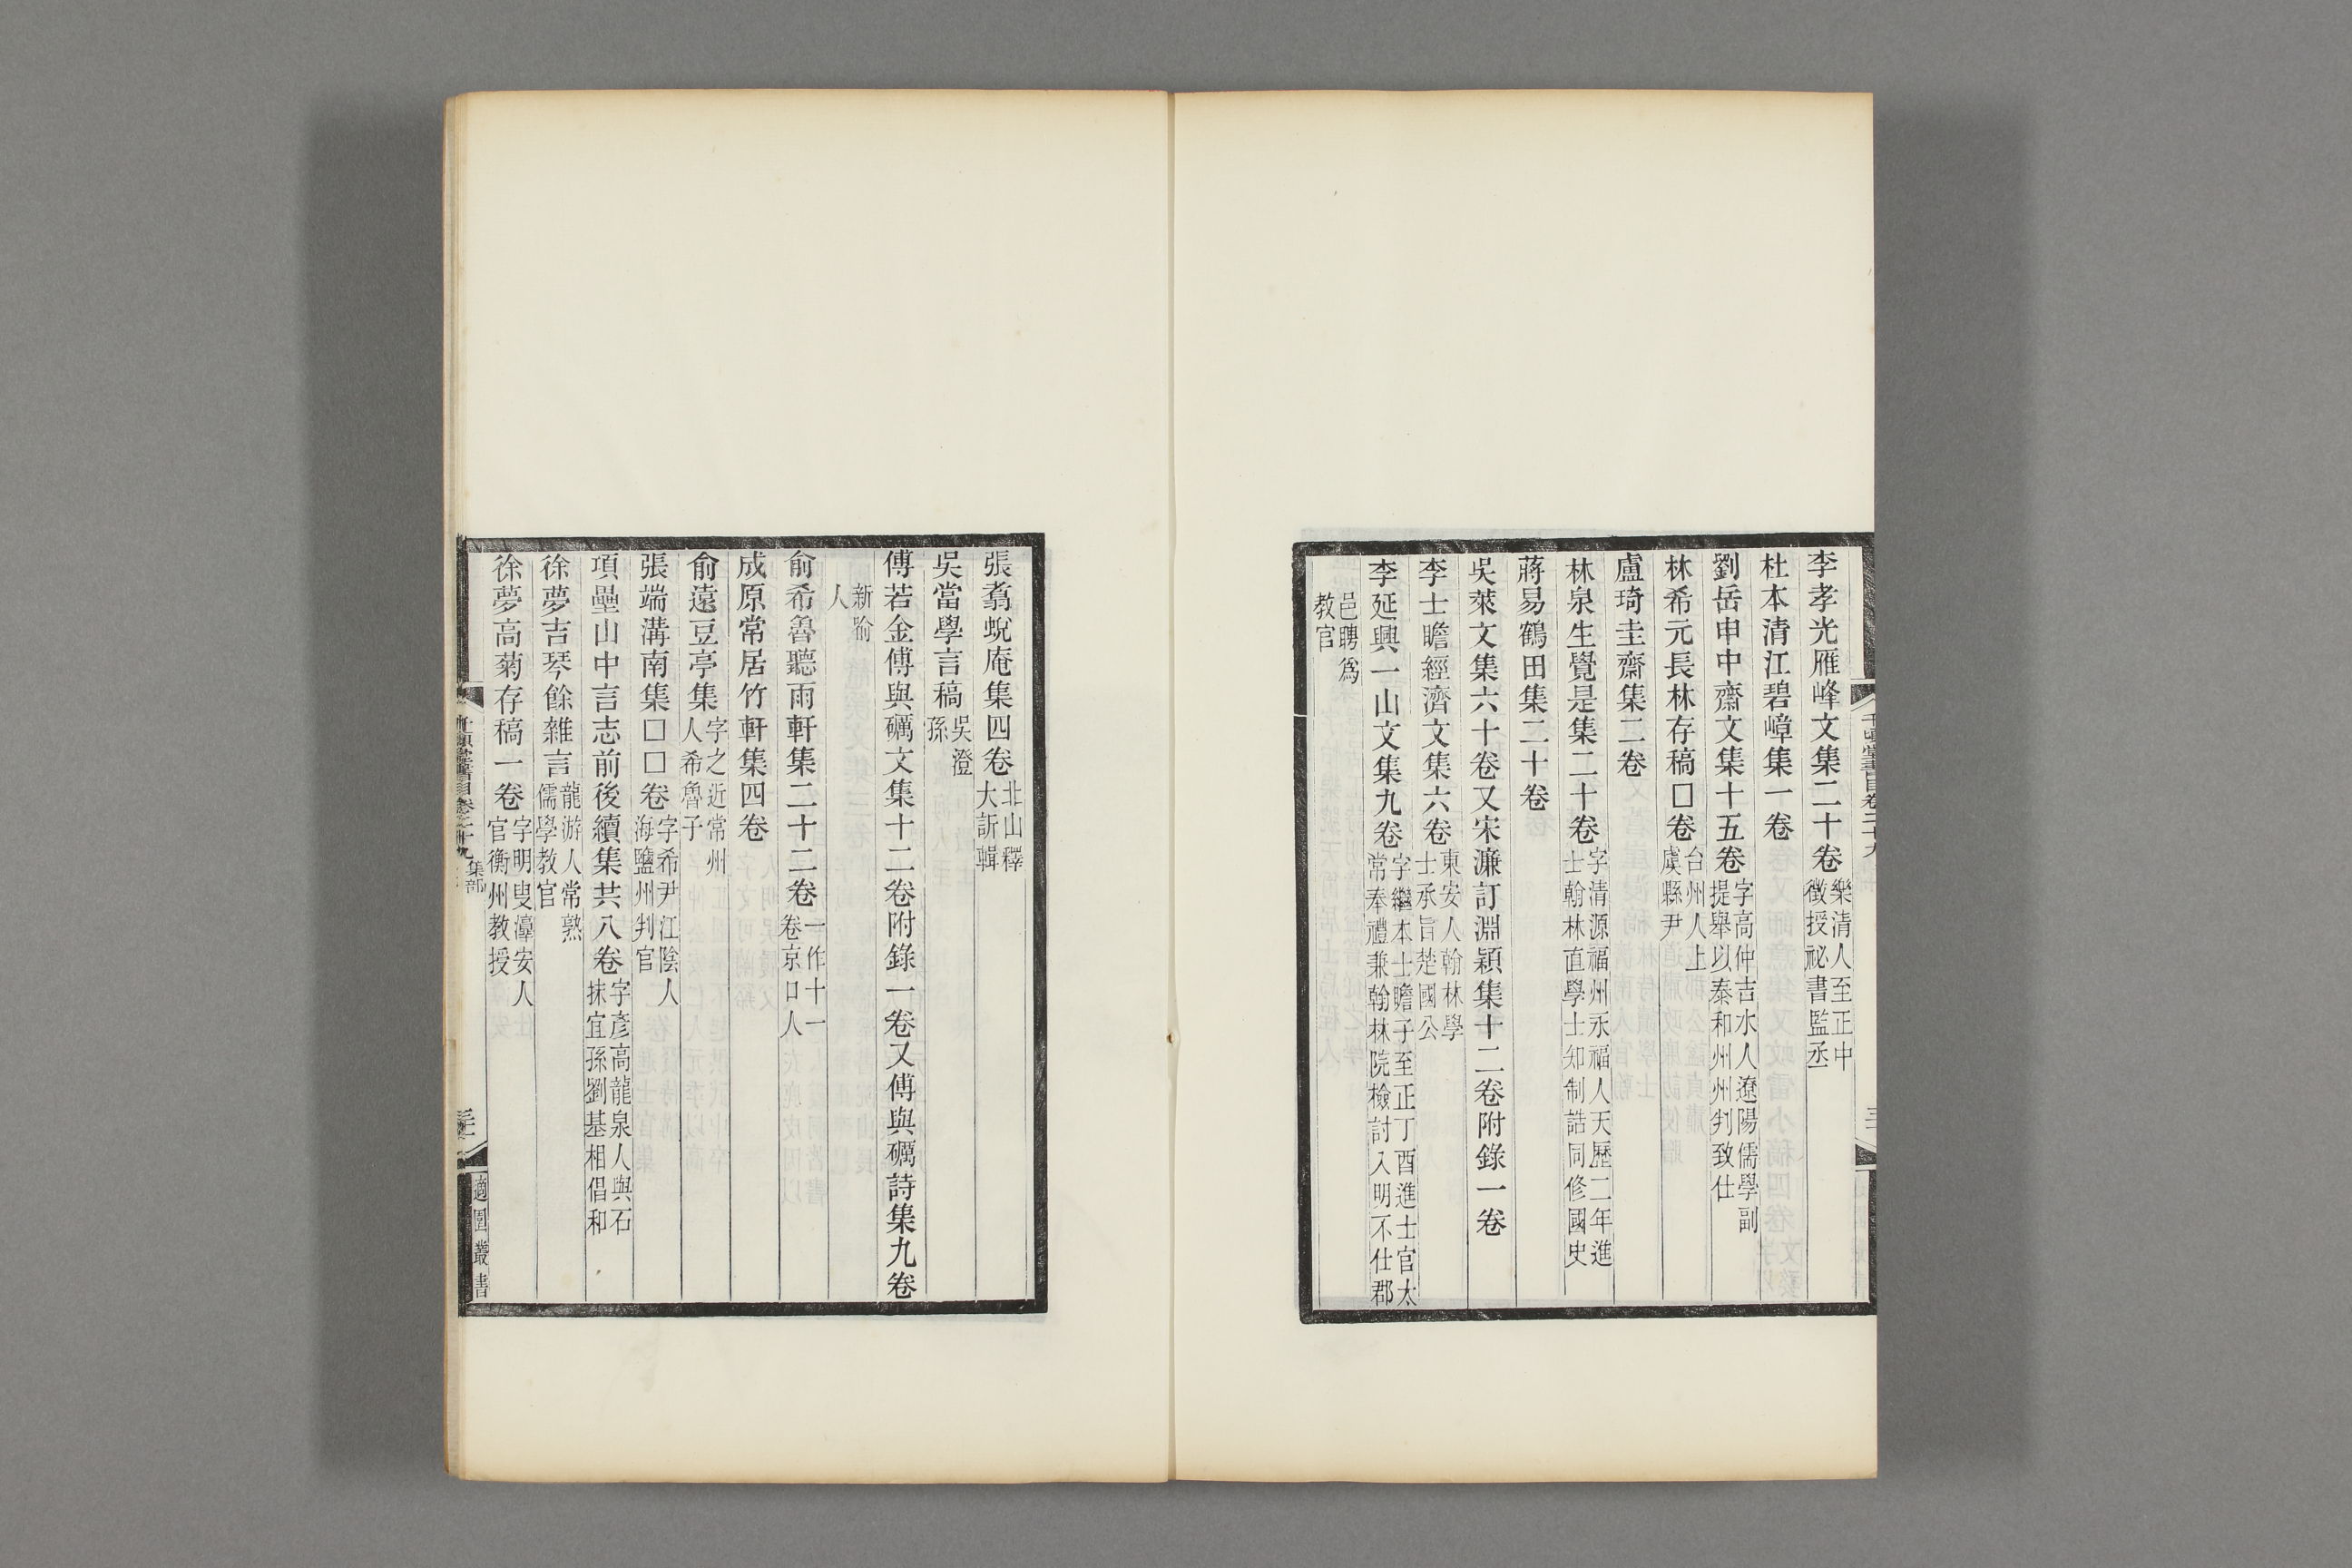 李孝光雁峰文集二十卷樂清人至正中徵授祕書監丞
杜本清江碧嶂集一卷
劉岳申申齋文集十五卷字高仲吉水人遼陽儒學副提舉以泰和州州判致仕
林希元長林存稿囗卷台州人上虞縣尹
盧琦圭齋集二卷
林泉生覺是集二十卷字清源福州永福人天歷二年進士翰林直學士知制誥同修國史
蔣易鶴田集二十卷
吳萊文集六十卷又宋濂訂淵穎集十二卷附錄一卷
李士瞻經濟文集六卷東安人翰林學士承旨楚國公
李延興一山文集九卷字繼本士瞻子至正丁酉進士官太常奉禮兼翰林院檢討入明不仕郡
邑聘為教官
張翥蛻庵集四卷北山釋大訢輯
吳當學言稿吳澄孫
傅若金傅與礪文集十二卷附錄一卷又傅與礪詩集九卷
新喻人
俞希魯聽雨軒集二十二卷一作十一卷京口人
成原常居竹軒集四卷
俞遠豆亭集字之近常州人希魯子
張端溝南集囗囗卷字希尹江陰人海鹽州判官
項壘山中言志前後續集共八卷字彥高龍泉人與石抹宜孫劉基相倡和
徐夢吉琴餘雜言龍游人常熟儒學教官
徐夢高菊存稿一卷字明叟瀛安人官衡州教授
千頃堂書目卷二十九
集部
適園叢書